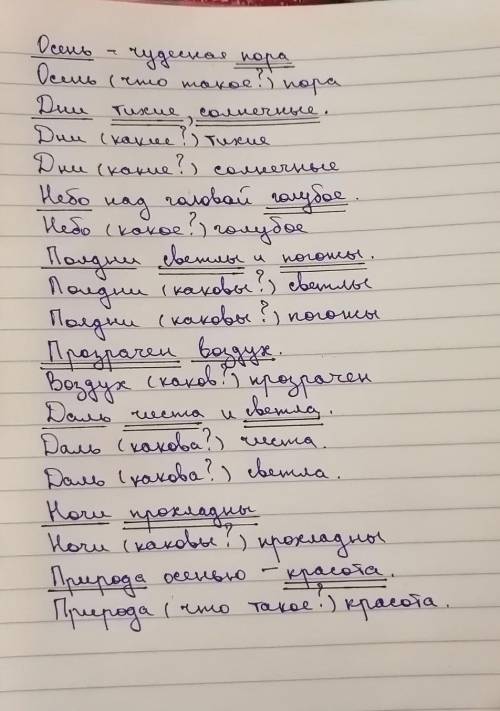 Осень - чудесная пора
Осень (что такое?) пора
Дни тихие, солнечные.
Дни (какие?) тихие
Дни (какие?) солнечные
Небо над головой голубое.
Небо (какое?) голубое
Полдни светлы и погожы.
Полдни (каковы?) светлы
Полдни (каковы?) погожы
Прозрачен воздух.
Воздух (каков?) прозрачен
Даль чиста и светла.
Даль (какова?) чиста.
Даль (какова?) светла.
Ночи прохладны
Ночи (каковы?) прохладны
Природа осенью - красота.
Природа (что такое?) красота.